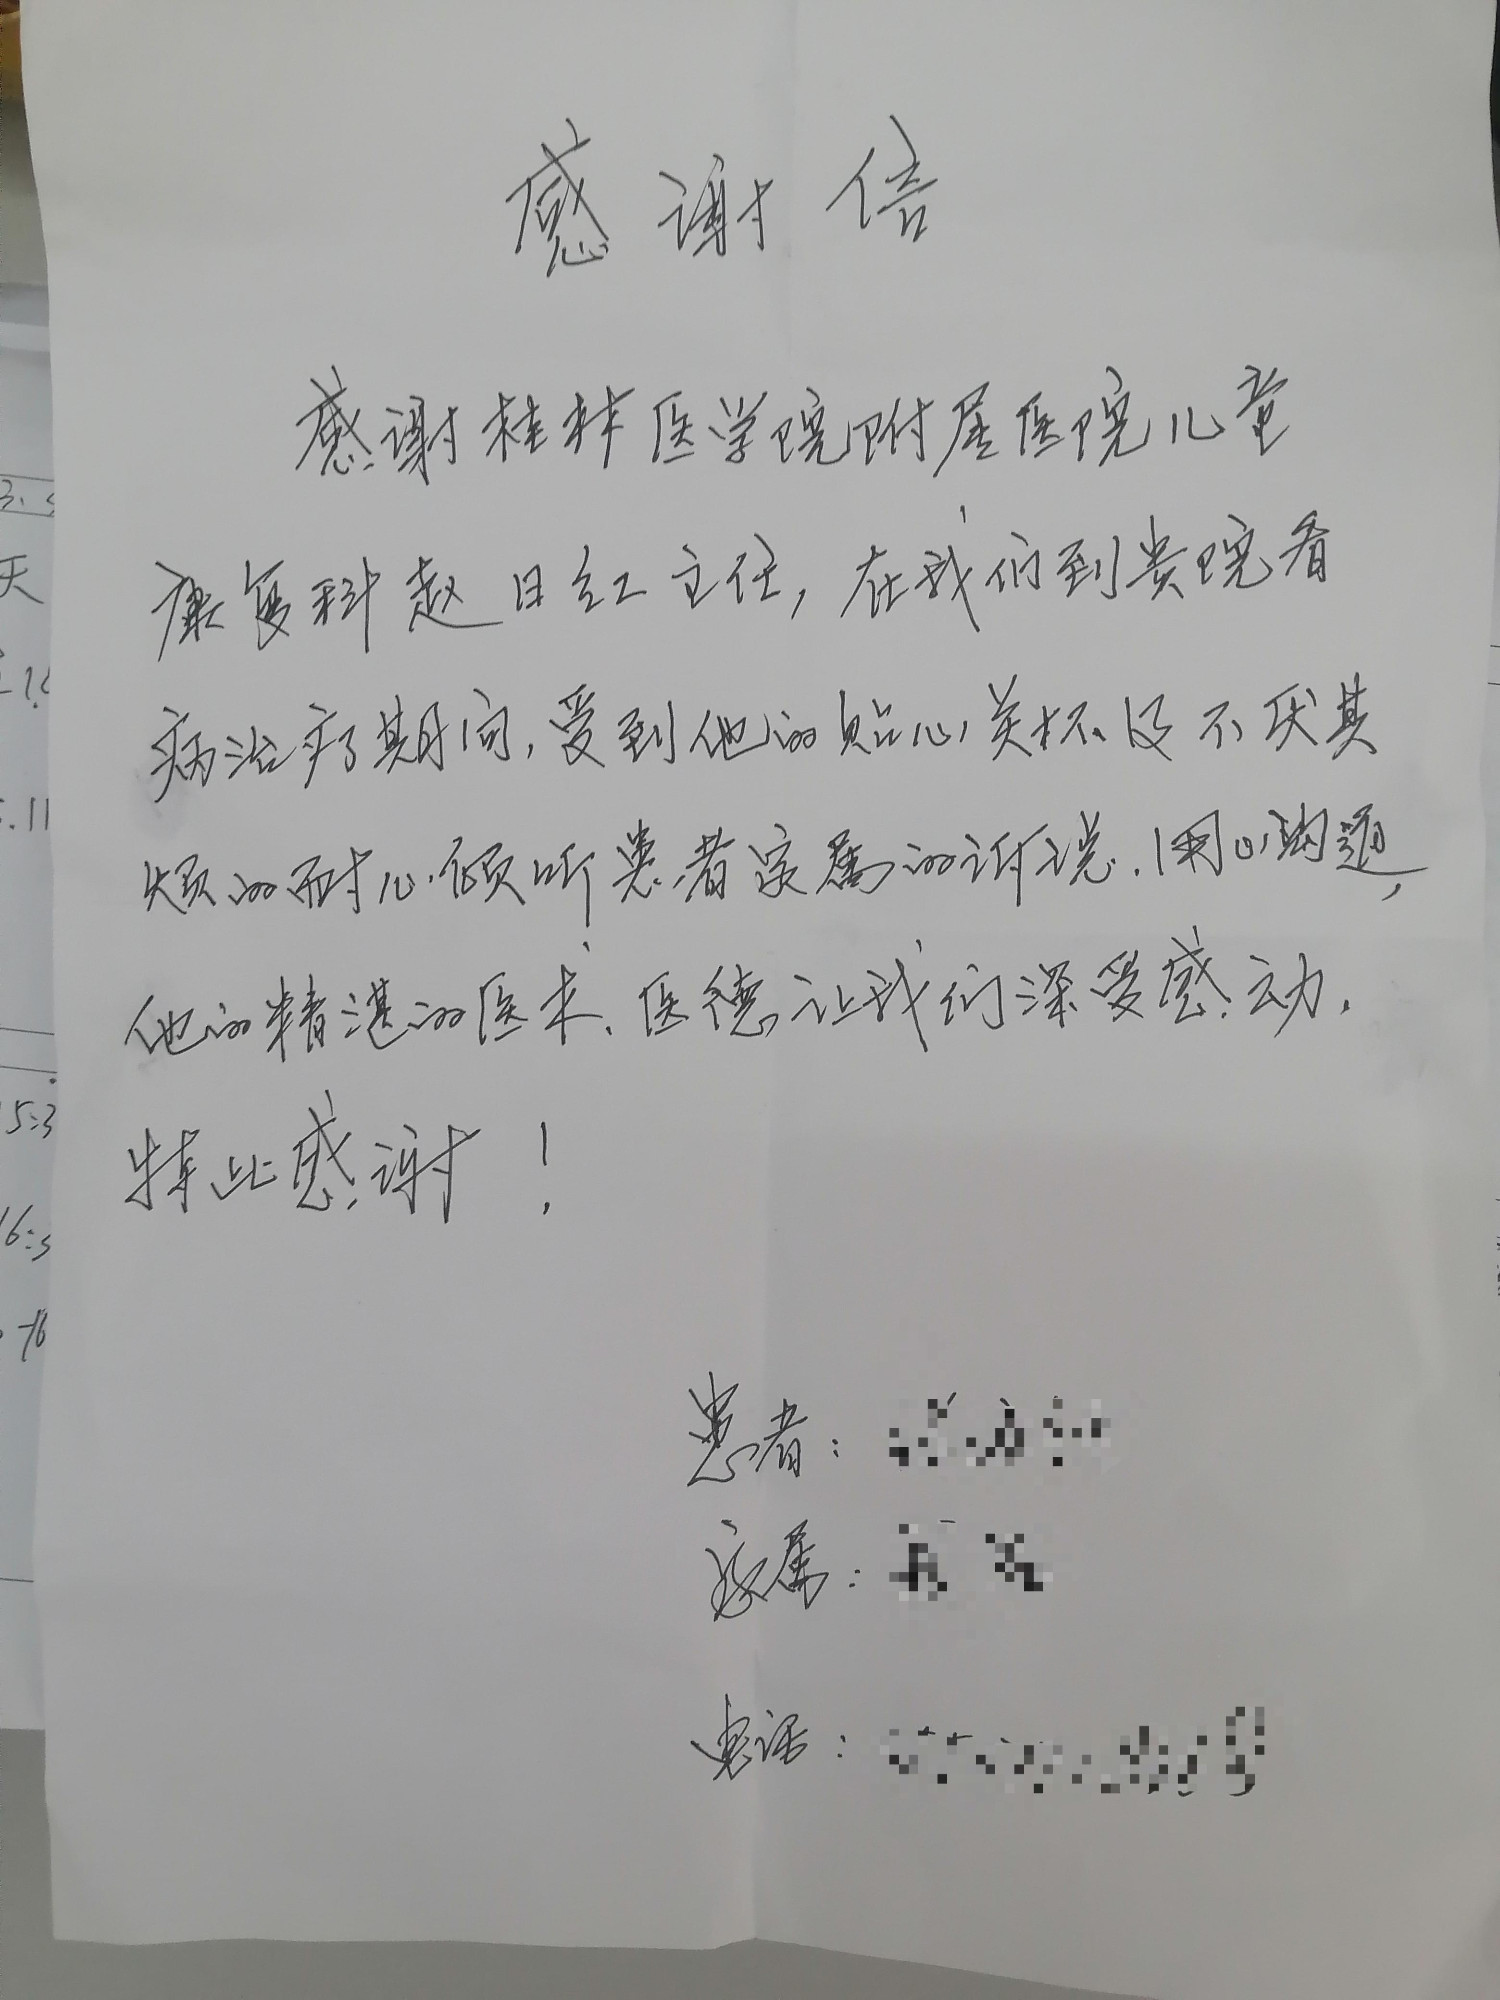 感谢信
感谢桂林医学院附属医院儿童
康复科赵日红主任,在我们到贵院看
病治疗期间,受到他的贴心关怀及不厌其
烦的耐心倾听患者家属的诉说.用心沟通,
他的精湛的医术、医德让我们深受感动.
特此感谢!
患者:
家属:
电话:
3.5
天
5.11
15:3
16:3